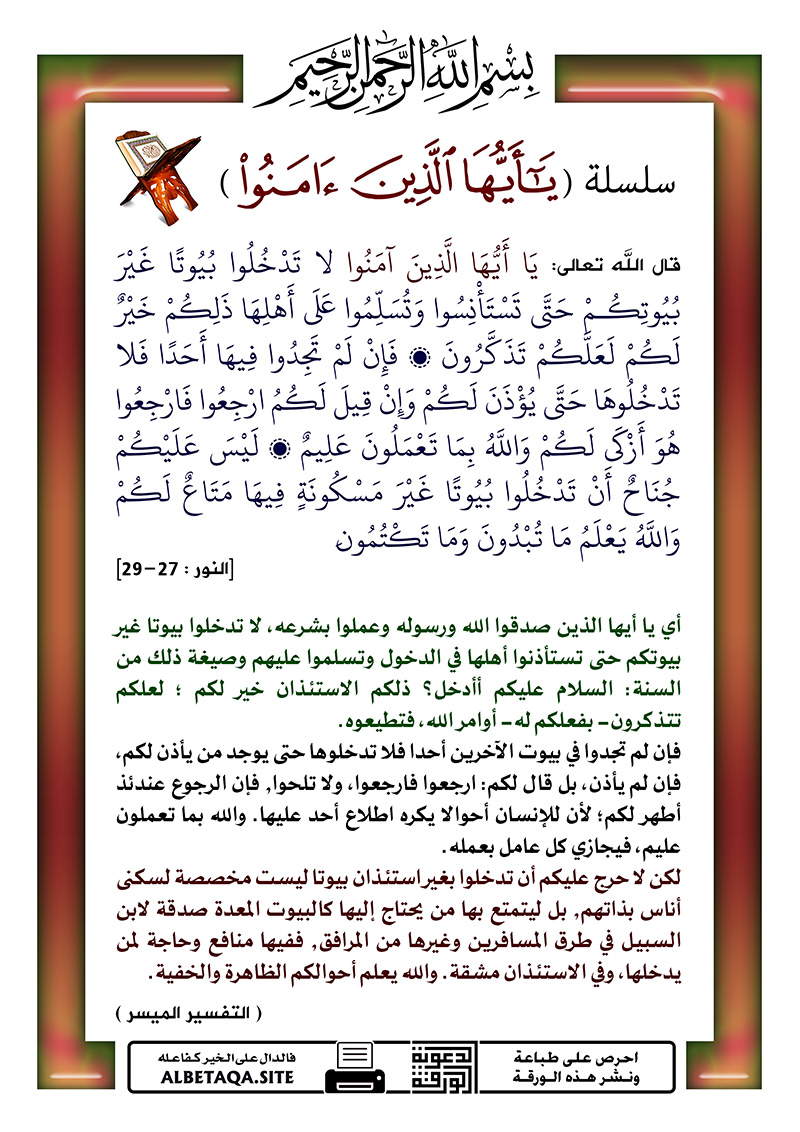 بِسْمِ اللَّهِ الرَّحْمَنِ الرَّحِيمِ
سلسلة (يَٰٓأَيُّهَا ٱلَّذِينَ ءَامَنُوا۟)
قال الله تعالى: يَا أَيُّهَا الَّذِينَ آمَنُوا لا تَدْخُلُوا بُيُوتًا غَيْرَ
بُيُوتِكُمْ حَتَّى تَسْتَأْنِسُوا وَتُسَلِّمُوا عَلَى أَهْلِهَا ذَلِكُمْ خَيْرٌ
لَكُمْ لَعَلَّكُمْ تَذَكَّرُونَ ۞ فَإِنْ لَمْ تَجِدُوا فِيهَا أَحَدًا فَلا
تَدْخُلُوهَا حَتَّى يُؤْذَنَ لَكُمْ وَإِنْ قِيلَ لَكُمُ ارْجِعُوا فَارْجِعُوا
هُوَ أَزْكَى لَكُمْ وَاللَّهُ بِمَا تَعْمَلُونَ عَلِيمٌ ۞ لَيْسَ عَلَيْكُمْ
جُنَاحٌ أَنْ تَدْخُلُوا بُيُوتًا غَيْرَ مَسْكُونَةٍ فِيهَا مَتَاعٌ لَكُمْ
وَاللَّهُ يَعْلَمُ مَا تُبْدُونَ وَمَا تَكْتُمُونَ
[النور : 27-29]
أي يا أيها الذين صدقوا الله ورسوله وعملوا بشرعه، لا تدخلوا بيوتا غير
بيوتكم حتى تستأذنوا أهلها في الدخول وتسلموا عليهم وصيغة ذلك من
السنة: السلام عليكم أأدخل؟ ذلكم الاستئذان خير لكم ؛ لعلكم
تتذكرون- بفعلكم له- أوامر الله، فتطيعوه.
فإن لم تجدوا في بيوت الآخرين أحدا فلا تدخلوها حتى يوجد من يأذن لكم،
فإن لم يأذن، بل قال لكم: ارجعوا فارجعوا، ولا تلحوا, فإن الرجوع عندئذ
أطهر لكم؛ لأن للإنسان أحوالا يكره اطلاع أحد عليها. والله بما تعملون
عليم، فيجازي كل عامل بعمله.
لكن لا حرج عليكم أن تدخلوا بغير استئذان بيوتا ليست مخصصة لسكنى
أناس بذاتهم, بل ليتمتع بها من يحتاج إليها كالبيوت المعدة صدقة لابن
السبيل في طرق المسافرين وغيرها من المرافق, ففيها منافع وحاجة لمن
يدخلها، وفي الاستئذان مشقة. والله يعلم أحوالكم الظاهرة والخفية.
( التفسير الميسر )
احرص على طباعة
ونشر هذه الورقة
الورقة
الدعوية
فالدال على الخير كفاعله
ALBETAQA.SITE